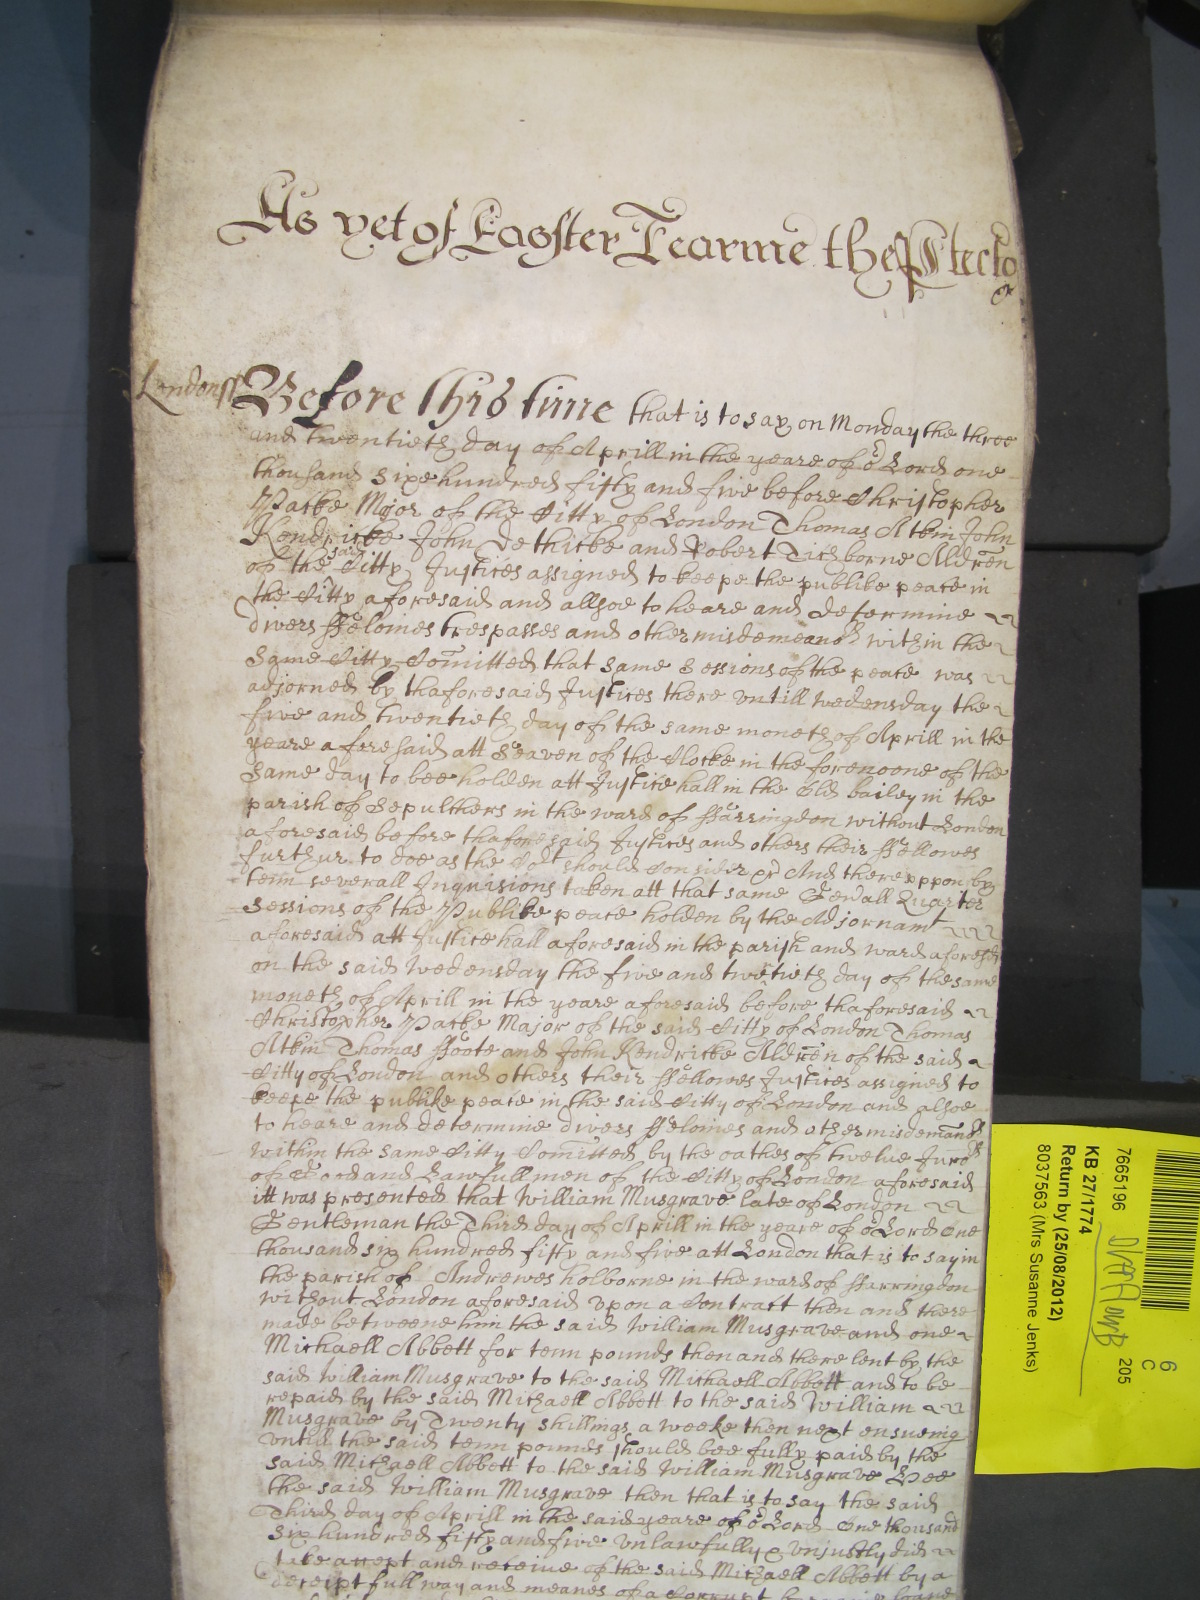 As yet of Easter Tearme the Ptecto
Londonss Before this time that is to say on Monday the three
and twentieth day of Aprill in the yeare of or Lord one
thousand sixe hundred fifty and five before Christopher
Packe Major of the Citty of London Thomas Atkin John
Kendricke John Dethicke and Robert Tichborne Aldren
of the said Citty Justices assigned to keepe the publike peace in
the Citty aforesaid and allsoe to heare and determine
divers ffelonies trespasses and other misdemeanors within the
same Citty Comitted that same Sessions of the peace was
adjorned by thaforesaid Justices there vntill wedensday the
five and twentieth day of the same moneth of Aprill in the
yeare aforesaid att Seaven of the Clocke in the forenoone of the
same day to bee holden att Justice hall in the Old bailey in the
parish of Sepulchers in the ward of ffarringdon without London
aforesaid before thaforesaid Justices and others their ffellowes
furthur to doe as the Cort should Consider &c And thereuppon by
tenn severall Inquisions taken att that same Genall Quarter
Sessions of the Publike peace holden by the Adjornamt
aforesaid att Justice hall aforesaid in the parish and ward aforesd
on the said Wedensday the five and twetieth day of the same
moneth of Aprill in the yeare aforesaid before thaforesaid
Christopher Packe Major of the said Citty of London Thomas
Atkin Thomas ffoote and John Kendricke Aldren of the said
Citty of London and others their ffellowes Justices assigned to
keepe the publike peace in the said Citty of London and alsoe
to heare and determine divers ffelonies and other misdemeanors
within the same Citty Comitted by the oathes of twelve Jurors
of Good and Lawfull men of the Citty of London aforesaid
itt was presented that William Musgrave late of London
Gentleman the Third day of Aprill in the yeare of or Lord One
thousand six hundred fifty and five att London that is to say in
the parish of Andrewes holborne in the ward of ffarringdon
without London aforesaid vpon a Contract then and there
made betweene him the said William Musgrave and one
Michaell Abbett for tenn pounds then and there lent by the
said William Musgrave to the said Michaell Abbett and to be
repaid by the said Michaell Abbett to the said William
Musgrave by Twenty shillings a weeke then next ensueing
vntill the said tenn pounds should bee fully paid by the
said Michaell Abbett to the said William Musgrave Hee
the said William Musgrave then that is to say the said
Third day of Aprill in the said yeare of or Lord One thousand
six hundred fifty and five vnlawfully & vnjustly did
take accept and receive of the said Michaell Abbett by a
deceiptfull way and meanes of a Corrupt
7665196
KB 27/1774
Return by (25/08/2012)
8037563 (Mrs Susanne Jenks)
6
C
205